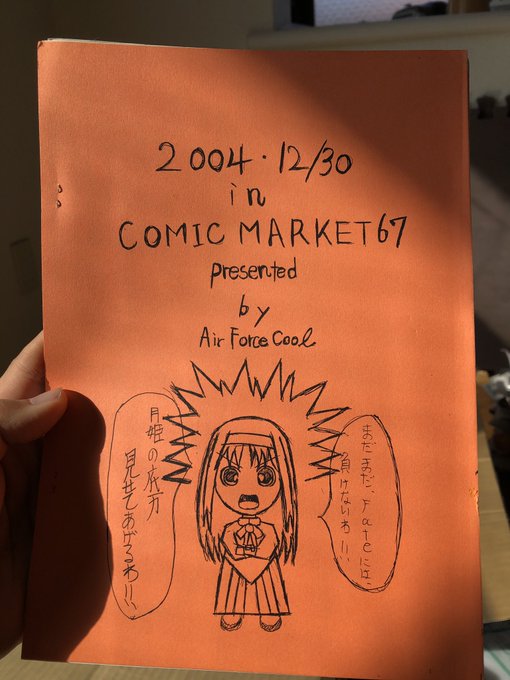 2004・12/30
in
COMIC MARKET67
presented
by
Air Force Cool
まだまだ、Fateには、
負けないわ!!
月姫の底力
見せてあげるわ!!